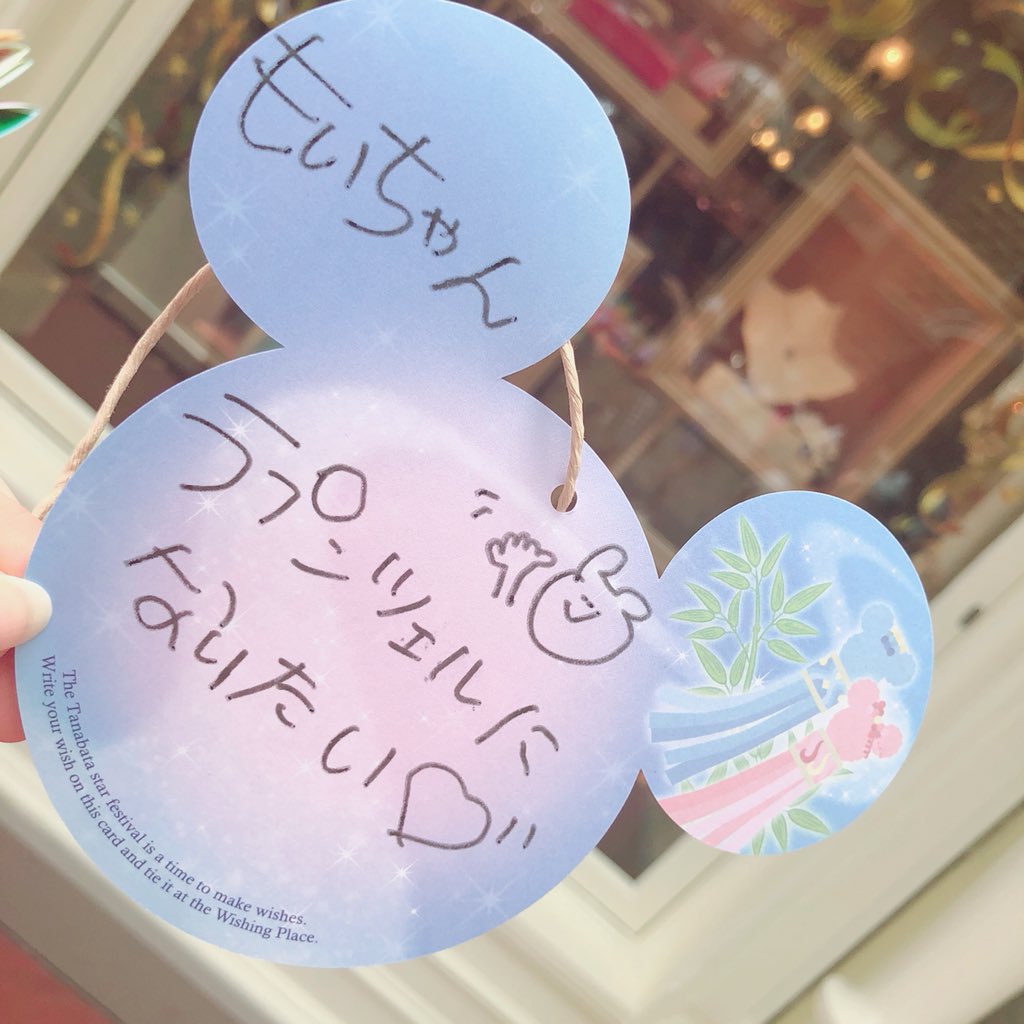 もいちゃん
ラプンツェルに
なりたい♡
The Tanabata star festival is a time to make wishes.
Write your wish on this card and tie it at the Wishing Place.